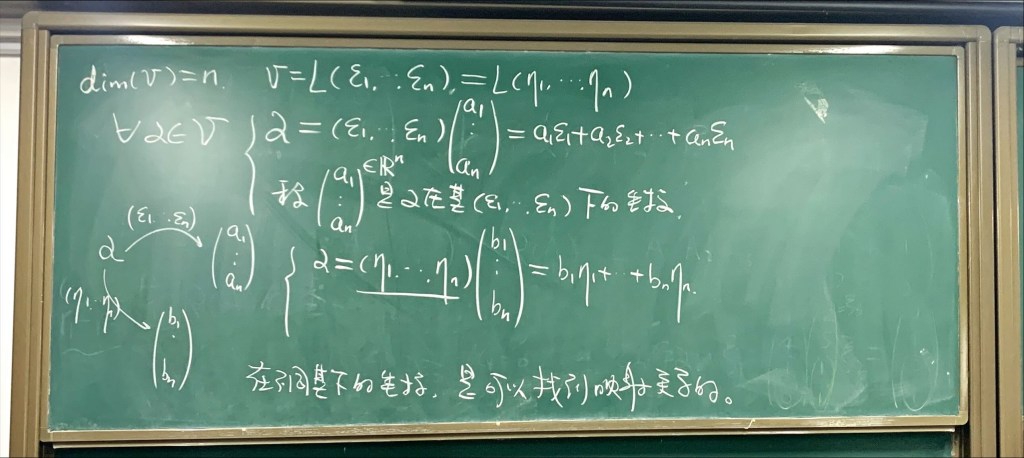 dim(V)=n. V=L(ε1,…εn)=L(η1,…ηn)
∀α∈V { α=(ε1,…εn)(a1 ⋮ an)=a1ε1+a2ε2+…+anεn
称(a1 ⋮ an)∈ℝⁿ是α在基(ε1,…εn)下的坐标.
(ε1…εn)
α (a1 ⋮ an)
{ α=(η1,…,ηn)(b1 ⋮ bn)=b1η1+…+bnηn.
(η1…ηn)
(b1 ⋮ bn)
在不同基下的坐标,是可以找到映射关系的。